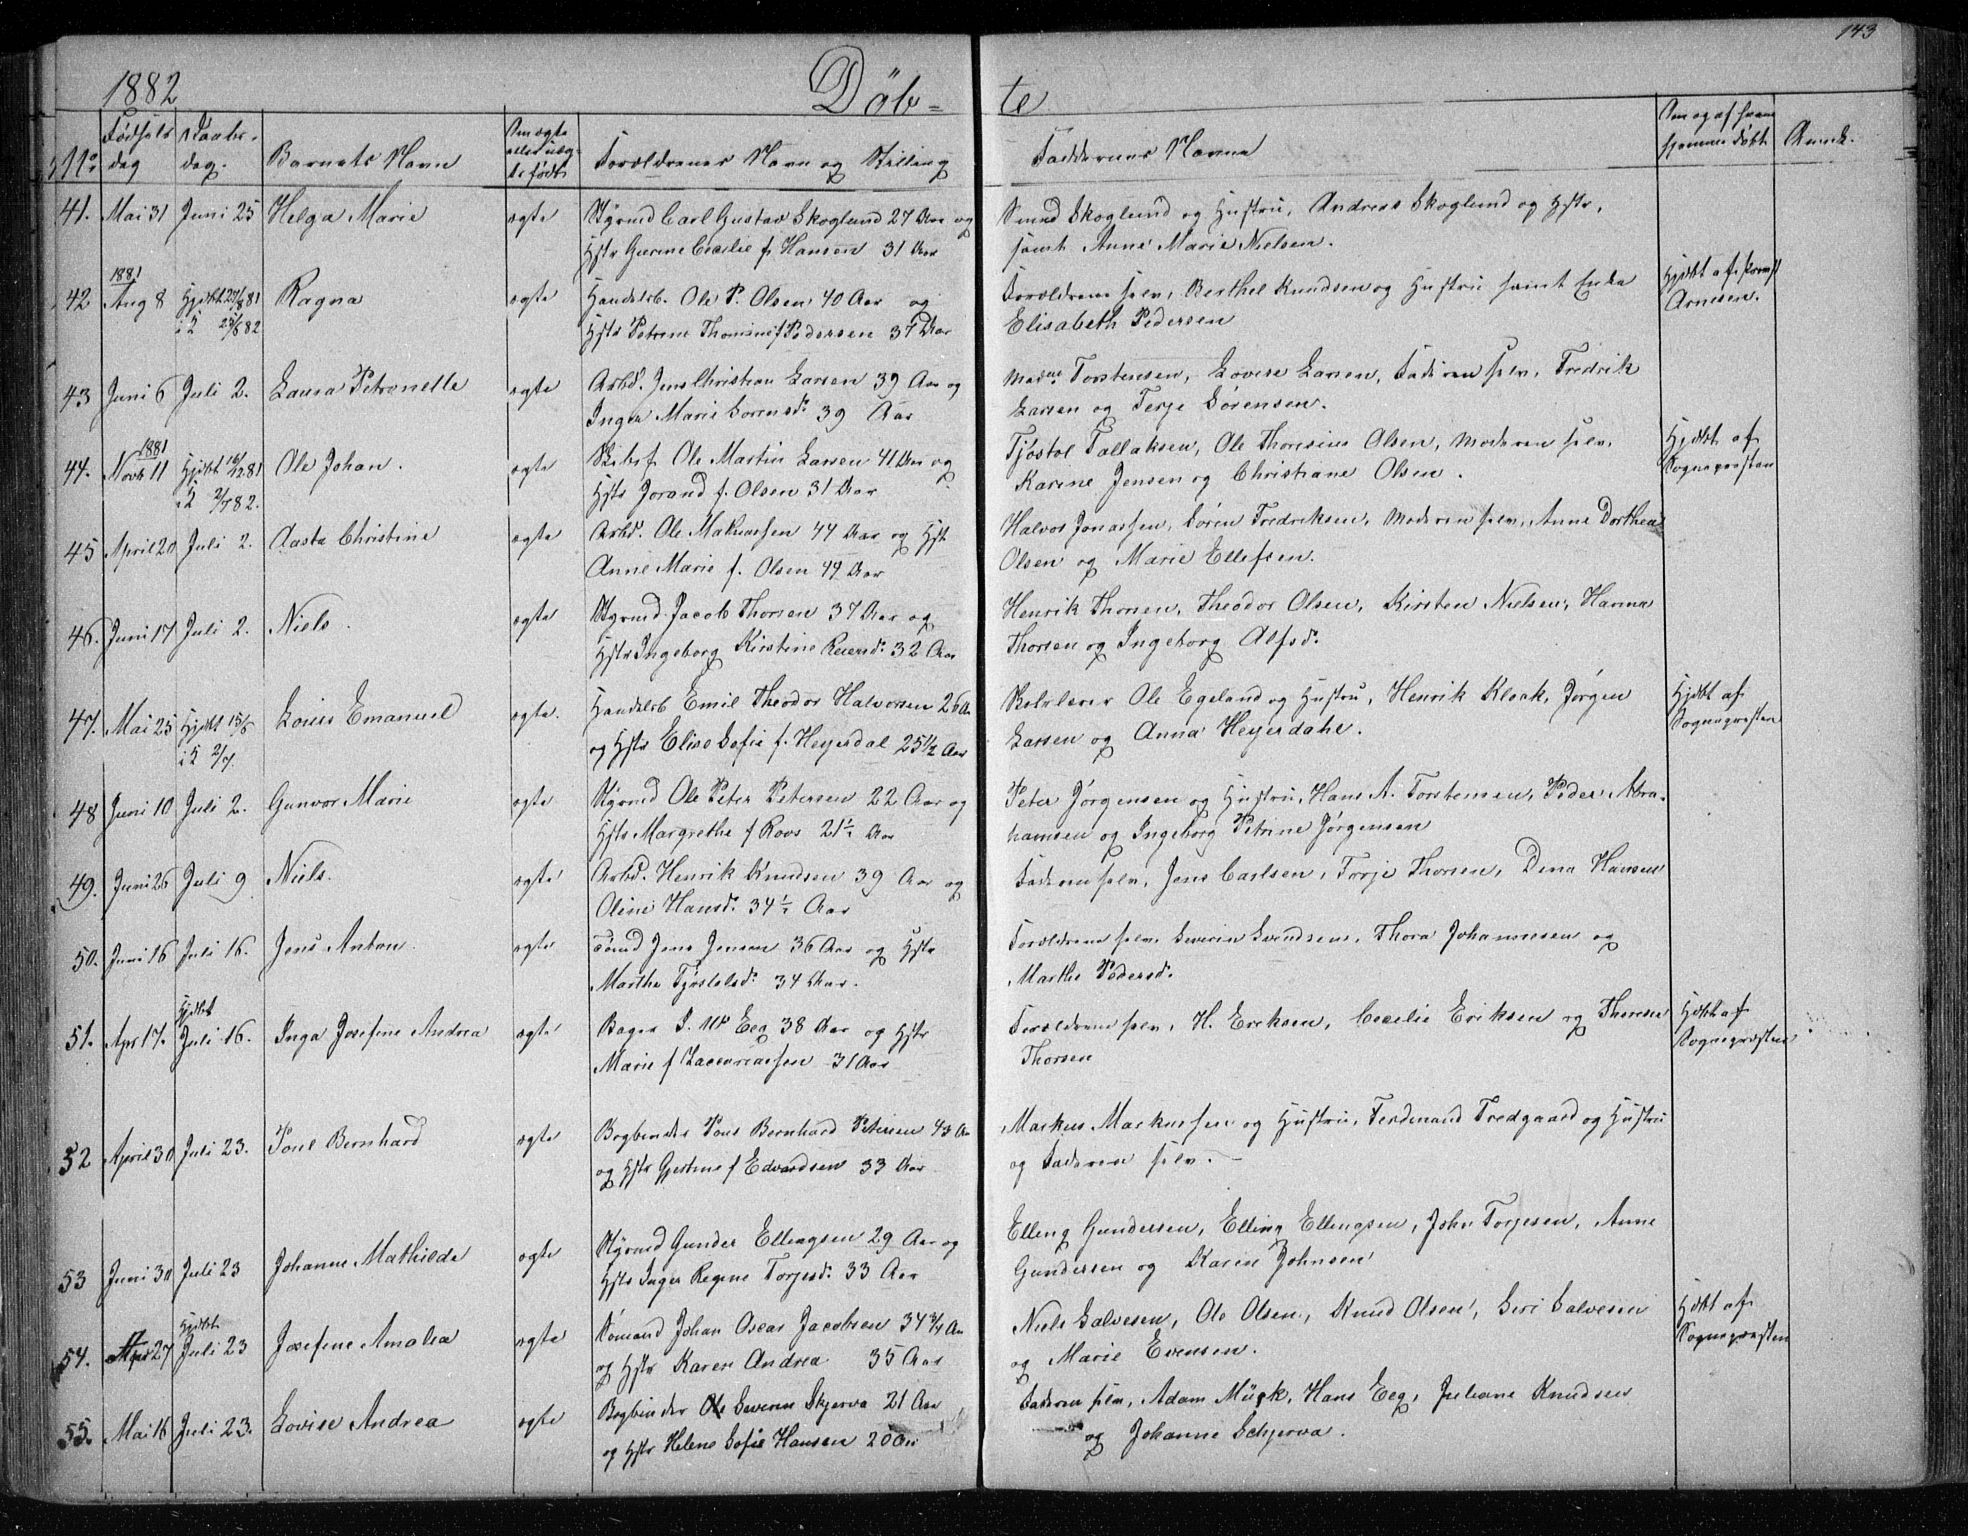 143
1882 Döb= te
No Fødsels dag Daabs- dag. Barnets Navn Om ægte eller uæg- te født Forældrenes Navn og Stilling Faddernes Navne Om og af hvem hjemme døbt Anmk.
41. Mai 31 Juni 25 Helga Marie ægte Styrmd Carl Gustav Skoglund 27 Aar og Svend Skoglund og Hustru, Andreas Skoglund og Hstr,
Hstr Gurine Cecilie f. Hansen 31 Aar samt Anne Marie Nielsen.
1881
42 Aug 8 Hjdbt 29/8 81 Ragna ægte Handelsb. Ole P. Olsen 40 Aar og Forældrene selv, Berthel Knudsen og Hustru samt Enke Hjdbt af
i K 25/6 82 Hstr Petrine Thomine f Pedersen 37 Aar Elisabeth Pedersen Arnesen.
43 Juni 6 Juli 2. Laura Petronelle ægte Arbd. Jens Christian Larsen 39 Aar og Madme Torstensen, Lovise Larsen, Faderen selv, Fredrik
Inger Marie Sørensd. 39 Aar Larsen og Terje Sørensen.
1881
44. Novb 11 Hjdbt 16/12 81 Ole Johan. ægte Skibsf. Ole Martin Larsen 41 Aar og Tjöstol Tallaksen, Ole Thoresius Olsen, Moderen selv, Hjdbt af
i K 2/7 82. Hstr Jorand f. Olsen 31 Aar Karine Jensen og Christiane Olsen. Sognepresten
45 April 20 Juli 2. Aasta Christine ægte Arbd. Ole Mathiassen 44 Aar og Hst Halvor Jonassen, Sören Fredriksen, Moderen selv, Anne Dorthea
Anne Marie f. Olsen 49 Aar Olsen og Marie Ellefsen.
46. Juni 17 Juli 2. Niels. ægte Styrmd. Jacob Thorsen 37 Aar og Henrik Thorsen, Theodor Olsen, Kirsten Nielsen, Hanna
Hstr Ingeborg Kirstine Reiersd. 32 Aar Thorsen og Ingeborg Alfsd.
47. Mai 25 Hjdbt 15/6 Louis Emanuel ægte. Handelsb Emil Theodor Halvorsen 26 A Ole Egeland og Hustru, Henrik Kloak, Jørgen Hjdbt af
i K 2/7 og Hstr Elise Sofie f. Heyerdal 25 1/2 Aar Larsen og Anna Heyerdahl. Sognepresten
48 Juni 10 Juli 2. Gunvor Marie ægte Styrmd Ole Peter Petersen 22 Aar og Peter Jörgensen og Hustru, Hans A. Torstensen, Peder Abra-
Hstr Margrethe f Roos 21 1/2 Aar hamsen og Ingeborg Petrine Jørgensen
49. Juni 26 Juli 9 Niels. ægte Arbd. Henrik Knudsen 39 Aar og Faderen selv, Jens Carlsen, Terje Thorsen, Dina Hansen
Oline Hansd. 34 1/2 Aar
50. Juni 16 Juli 16. Jens Anton. ægte Sömd Jens Jensen 36 Aar og Hstr Forældrene selv. Severin Svendsen, Thora Johannesen og
Marthe Tjöstolsd. 34 Aar. Marthe Pedersd.
Hjdbt
51. Apr 17. Juli 16. Inga Josefine Andrea ægte Bager Eeg 38 Aar og Hstr Forældrene selv, H. Eriksen, Cecilie Eriksen og Therese Hjdbt af
Marie f Zaccariassen 31 Aar Thorsen Sognepresten
52 April 30 Juli 23. Poul Bernhard ægte Bogbinder Poul Bernhard Petersen 43 Aar Markus Markussen og Hustru, Ferdinand Tredgaard og Hustru
og Hstr Gjertine f Edvardsen 33 Aar og Faderen selv.
53 Juni 30 Juli 23 Johanne Mathilde ægte Styrmd Gunder Ellingsen 29 Aar og Elling Gundersen, Elling Ellingsen, John Torjesen, Anne
Hstr Inger Regine Torjesd. 33 Aar Gundersen og Karen Johnsen
Hjdbt
54. Apr 27 Juli 23 Josefine Amalia ægte Sømand Johan Oscar Jacobsen 34 3/4 Aar Niels Salvesen, Ole Olsen, Knud Olsen, Siri Salvesen Hjdbt af
og Hstr Karen Andrea 35 Aar og Marie Evensen. Sognepresten
55. Mai 16 Juli 23. Lovise Andrea ægte Bogbinder Ole Severin Skjerva 21 Aar Faderen selv, Adam Mürk, Hans Eeg, Juliane Knudsen
og Hstr Helene Sofie Hansen 20 Aar og Johanne Schjerva.